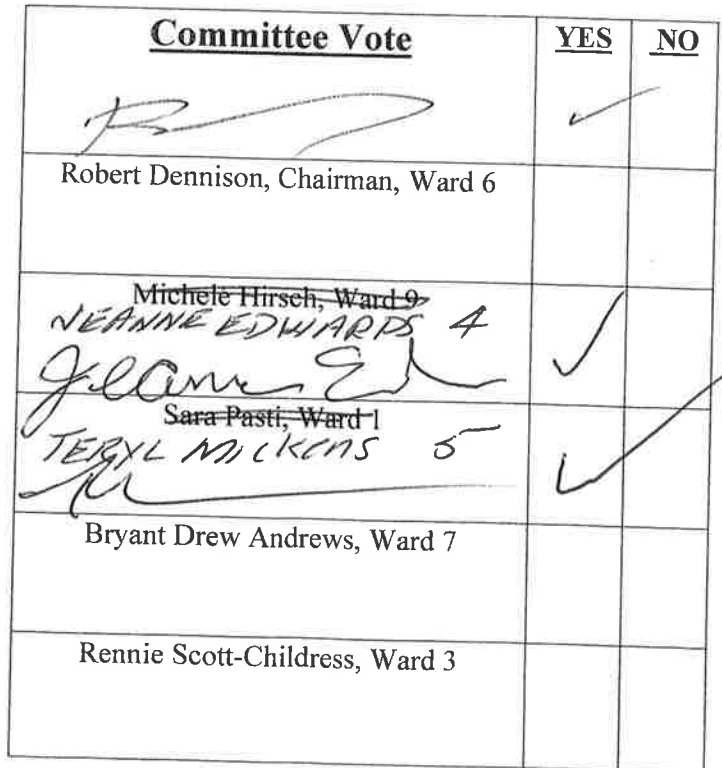 Committee Vote YES NO
Robert Dennison, Chairman, Ward 6
Michele Hirsch, Ward 9
JEANNE EDWARDS 4
Sara Pasti, Ward 1
TERYL MICKENS 5
Bryant Drew Andrews, Ward 7
Rennie Scott-Childress, Ward 3